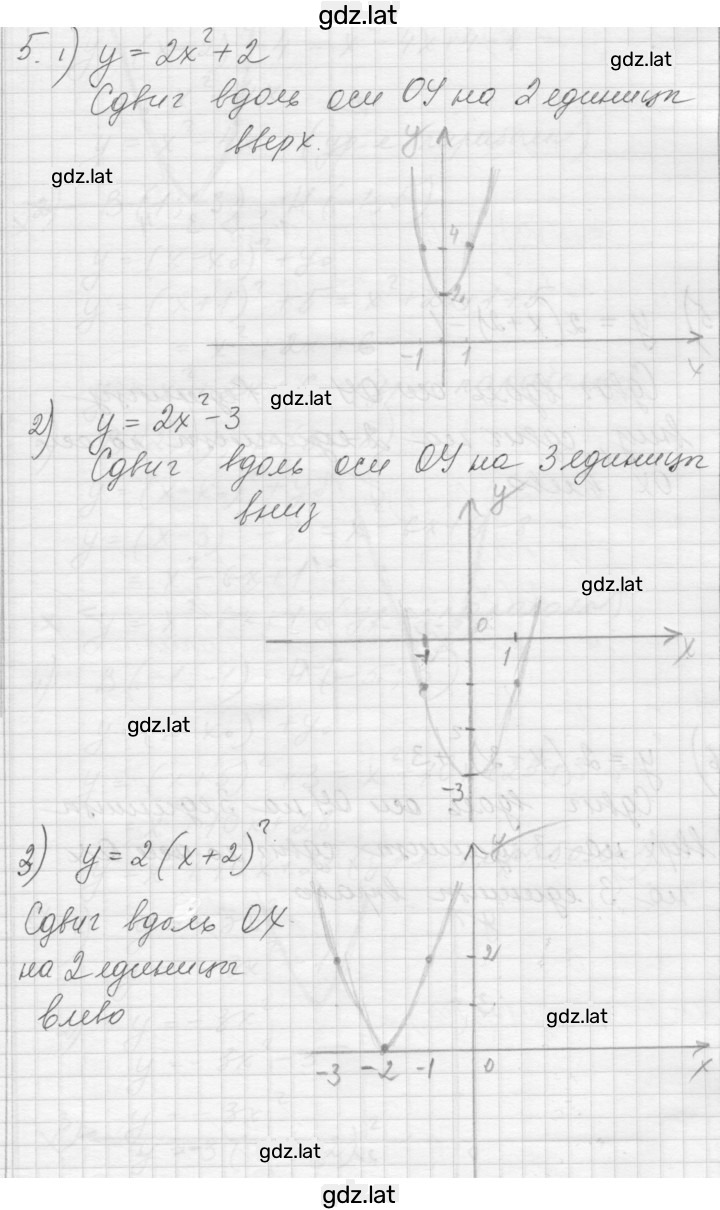 gdz.lat
5. 1) y = 2x² + 2
gdz.lat
Сдвиг вдоль оси ОУ на 2 единицы
вверх.
y
gdz.lat
4
2
-1 1
x
gdz.lat
2) y = 2x² - 3
Сдвиг вдоль оси ОУ на 3 единицы
вниз
y
gdz.lat
0
-1 1
x
gdz.lat
-3
3) y = 2(x+2)²
y
Сдвиг вдоль ОХ
на 2 единицы
2
влево
gdz.lat
-3 -2 -1 0
x
gdz.lat
gdz.lat